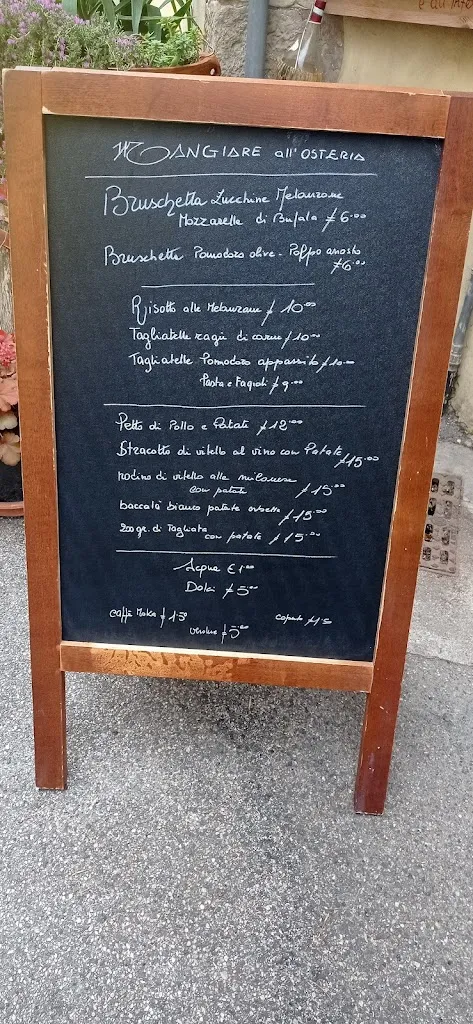 MANGIARE all'OSTERIA
Bruschetta Zucchine Melanzane
Mozzarella di Bufala € 6.00
Bruschetta Pomodoro olive - Polpo arrosto
€6.00
Risotto alle Melanzane € 10.00
Tagliatelle ragù di carne € 10.00
Tagliatelle Pomodoro appassito € 10.00
Pasta e Fagioli € 9.00
Petto di Pollo e Patate € 12.00
Stracotto di vitello al vino con Patate
€15.00
nodino di vitello alla milanese
con patate € 15.00
baccalà bianco patate € 15.00
200 gr. di Tagliata con patate € 15.00
Acqua € 1.00
Dolci € 5.00
caffè Moka € 1.50
coperto € 1.5
verdure € 5.00